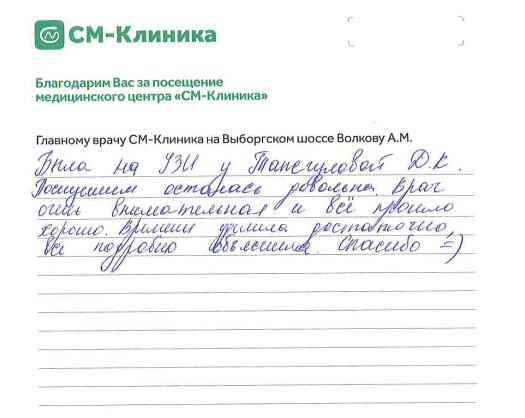 СМ-Клиника
Благодарим Вас за посещение
медицинского центра «СМ-Клиника»
Главному врачу СМ-Клиника на Выборгском шоссе Волкову А.М.
Была на УЗИ у Д.К.
Посещением осталась довольна. Врач
очень внимательная и всё прошло
хорошо. Времени уделила достаточно,
все подробно объяснила. Спасибо =)